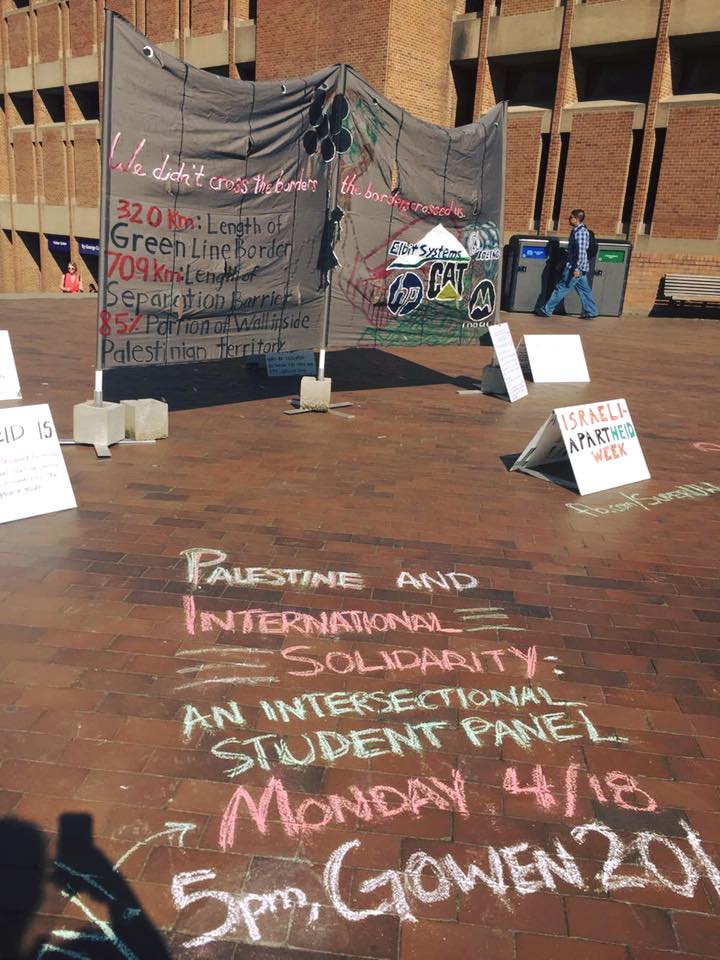 We didn't cross the borders
the borders crossed us.
320 Km: Length of
Green Line Border
709 Km: Length of
Separation Barrier
85% Portion of Wall inside
Palestinian territory
Elbit Systems
BOEING
hp
CAT
ISRAELI-
APARTHEID
WEEK
EID IS
PALESTINE AND
INTERNATIONAL
SOLIDARITY:
AN INTERSECTIONAL
STUDENT PANEL
MONDAY 4/18
5pm, GOWEN 201